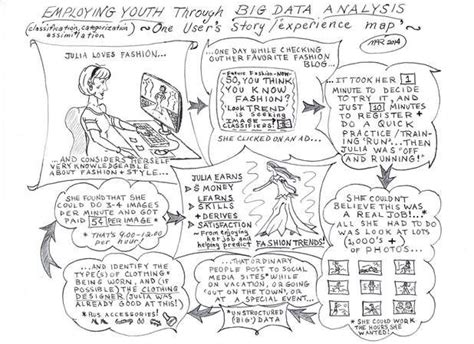 EMPLOYING YOUTH Through BIG DATA ANALYSIS
(classification, categorization,
assimilation)
~One User's Story/experience map~
MR 2014
JULIA LOVES FASHION...
...AND CONSIDERS HERSELF
VERY KNOWLEDGEABLE
ABOUT FASHION + STYLE...
...ONE DAY WHILE CHECKING
OUT HER FAVORITE FASHION
BLOG...
~Future Fashion-NOW~
SO, YOU THINK
YOU KNOW
FASHION?
"LookTREND"
is seeking
IMAGE
CLASSIFIERS!
SHE CLICKED ON AN AD...
...IT TOOK HER 1
MINUTE TO DECIDE
TO TRY IT, AND
JUST 10 MINUTES
TO REGISTER +
DO A QUICK
PRACTICE/TRAIN-
ING 'RUN'...THEN
JULIA WAS "OFF
AND RUNNING!"
SHE COULDN'T
BELIEVE THIS WAS
A REAL JOB!!*
ALL SHE HAD TO
DO WAS LOOK AT
1,000's +
OF PHOTOS...
* SHE COULD WORK
THE HOURS SHE
WANTED!
...THAT ORDINARY
PEOPLE POST TO SOCIAL
MEDIA SITES* WHILE
ON VACATION, OR GOING
OUT ON THE TOWN, OR
AT A SPECIAL EVENT...
*UNSTRUCTURED
(BIG!) DATA
...AND IDENTIFY THE
TYPE(S) OF CLOTHING*
BEING WORN, AND (IF
POSSIBLE) THE CLOTHING
DESIGNER (JULIA WAS
ALREADY GOOD AT THIS!)
* PLUS ACCESSORIES!
SHE FOUND THAT SHE
COULD DO 3-4 IMAGES
PER MINUTE AND GOT
PAID 5¢ PER IMAGE*
* THAT'S 9.00-12.00
per hour!
JULIA EARNS
$ MONEY
LEARNS
SKILLS
+ DERIVES
SATISFACTION
~From enjoying
her job and
helping predict
FASHION TRENDS!